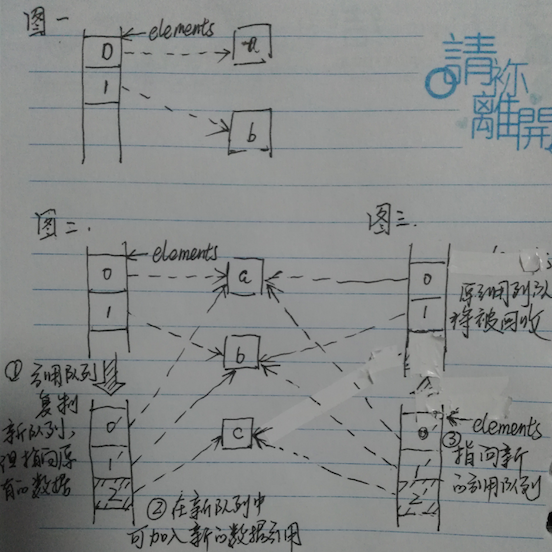 图一
elements
0
a
1
b
請祢
離開
图二.
elements
0
1
a
b
c
① 引用队列
复制
新队列,
但指向原
有的数据
0
1
2
② 在新队列中
可加入新的数据引用
图三.
0
1
原引用队列
将被回收
elements
0
1
2
③
指向新
的引用队列